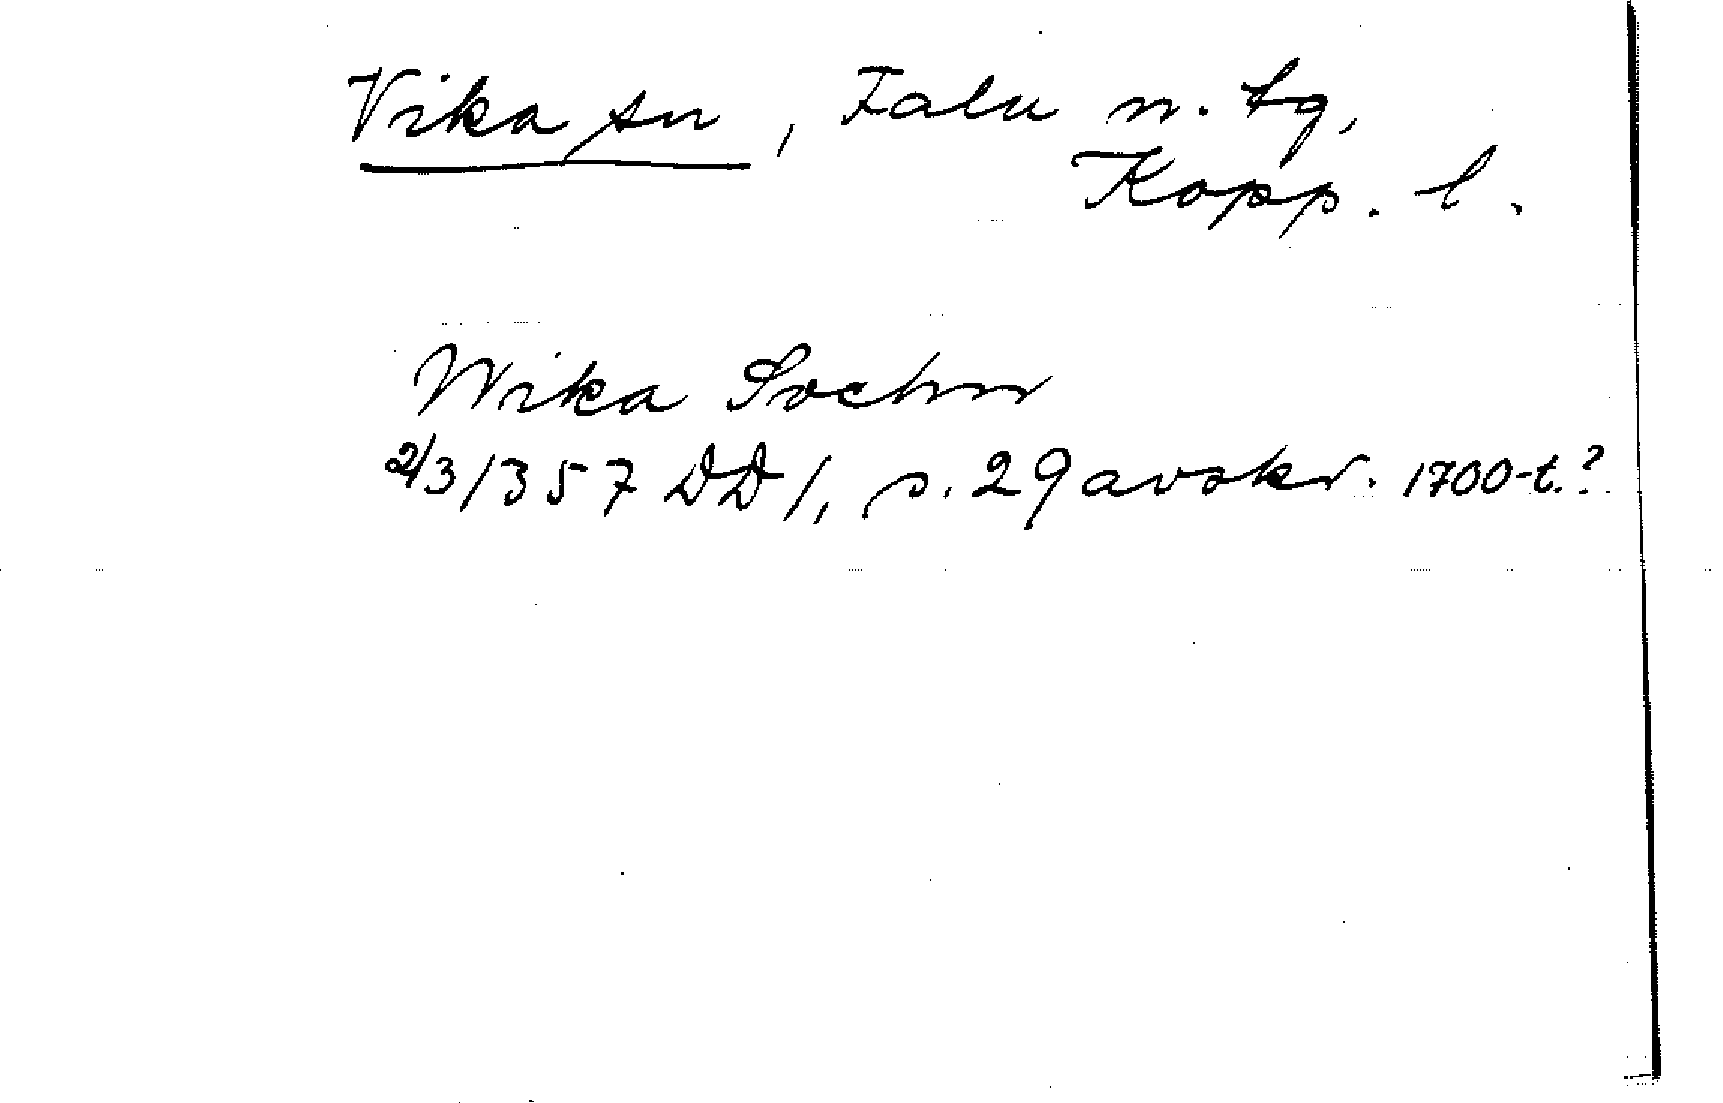 Vika sn, Falu n. tg,
Kopp. l.
Wika Sochn
2/3 1357 DD 1, s. 29 avskr. 1700-t.?